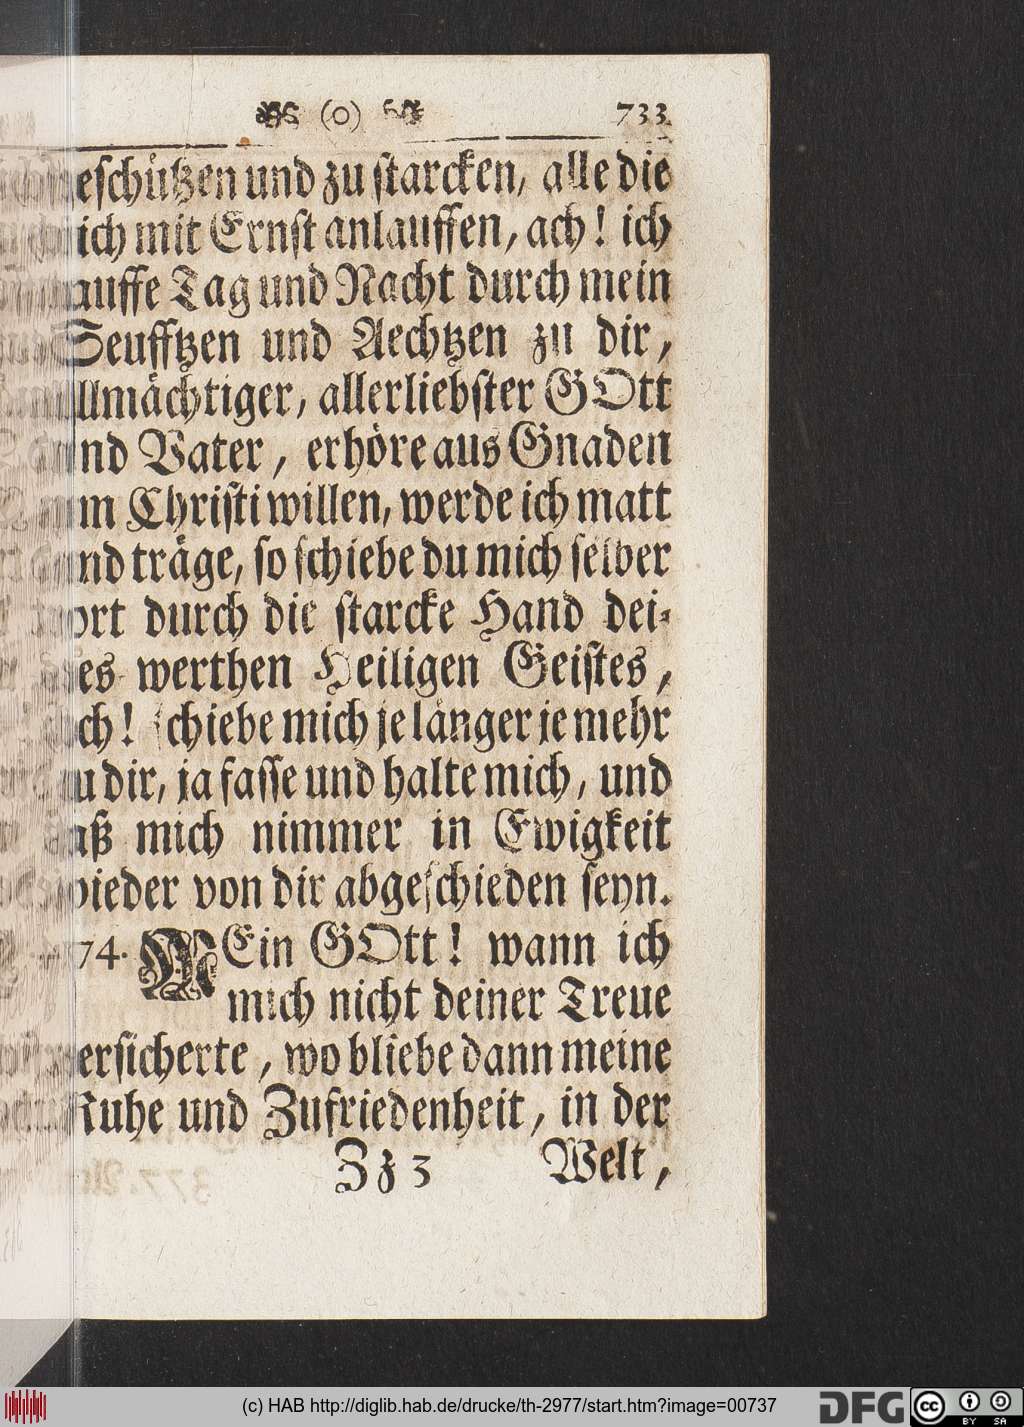 (o) 733.
eschützen und zu starcken, alle die
ich mit Ernst anlauffen, ach! ich
auffe Tag und Nacht durch mein
Seufftzen und Aechtzen zu dir,
llmächtiger, allerliebster GOtt
nd Vater, erhöre aus Gnaden
m Christi willen, werde ich matt
nd träge, so schiebe du mich selber
ort durch die starcke Hand dei-
es werthen Heiligen Geistes,
ch! schiebe mich je länger je mehr
u dir, ja fasse und halte mich, und
aß mich nimmer in Ewigkeit
wieder von dir abgeschieden seyn.
74. MEin GOtt! wann ich
mich nicht deiner Treue
ersicherte, wo bliebe dann meine
Ruhe und Zufriedenheit, in der
Zz 3 Welt,
(c) HAB http://diglib.hab.de/drucke/th-2977/start.htm?image=00737
DFG cc BY SA